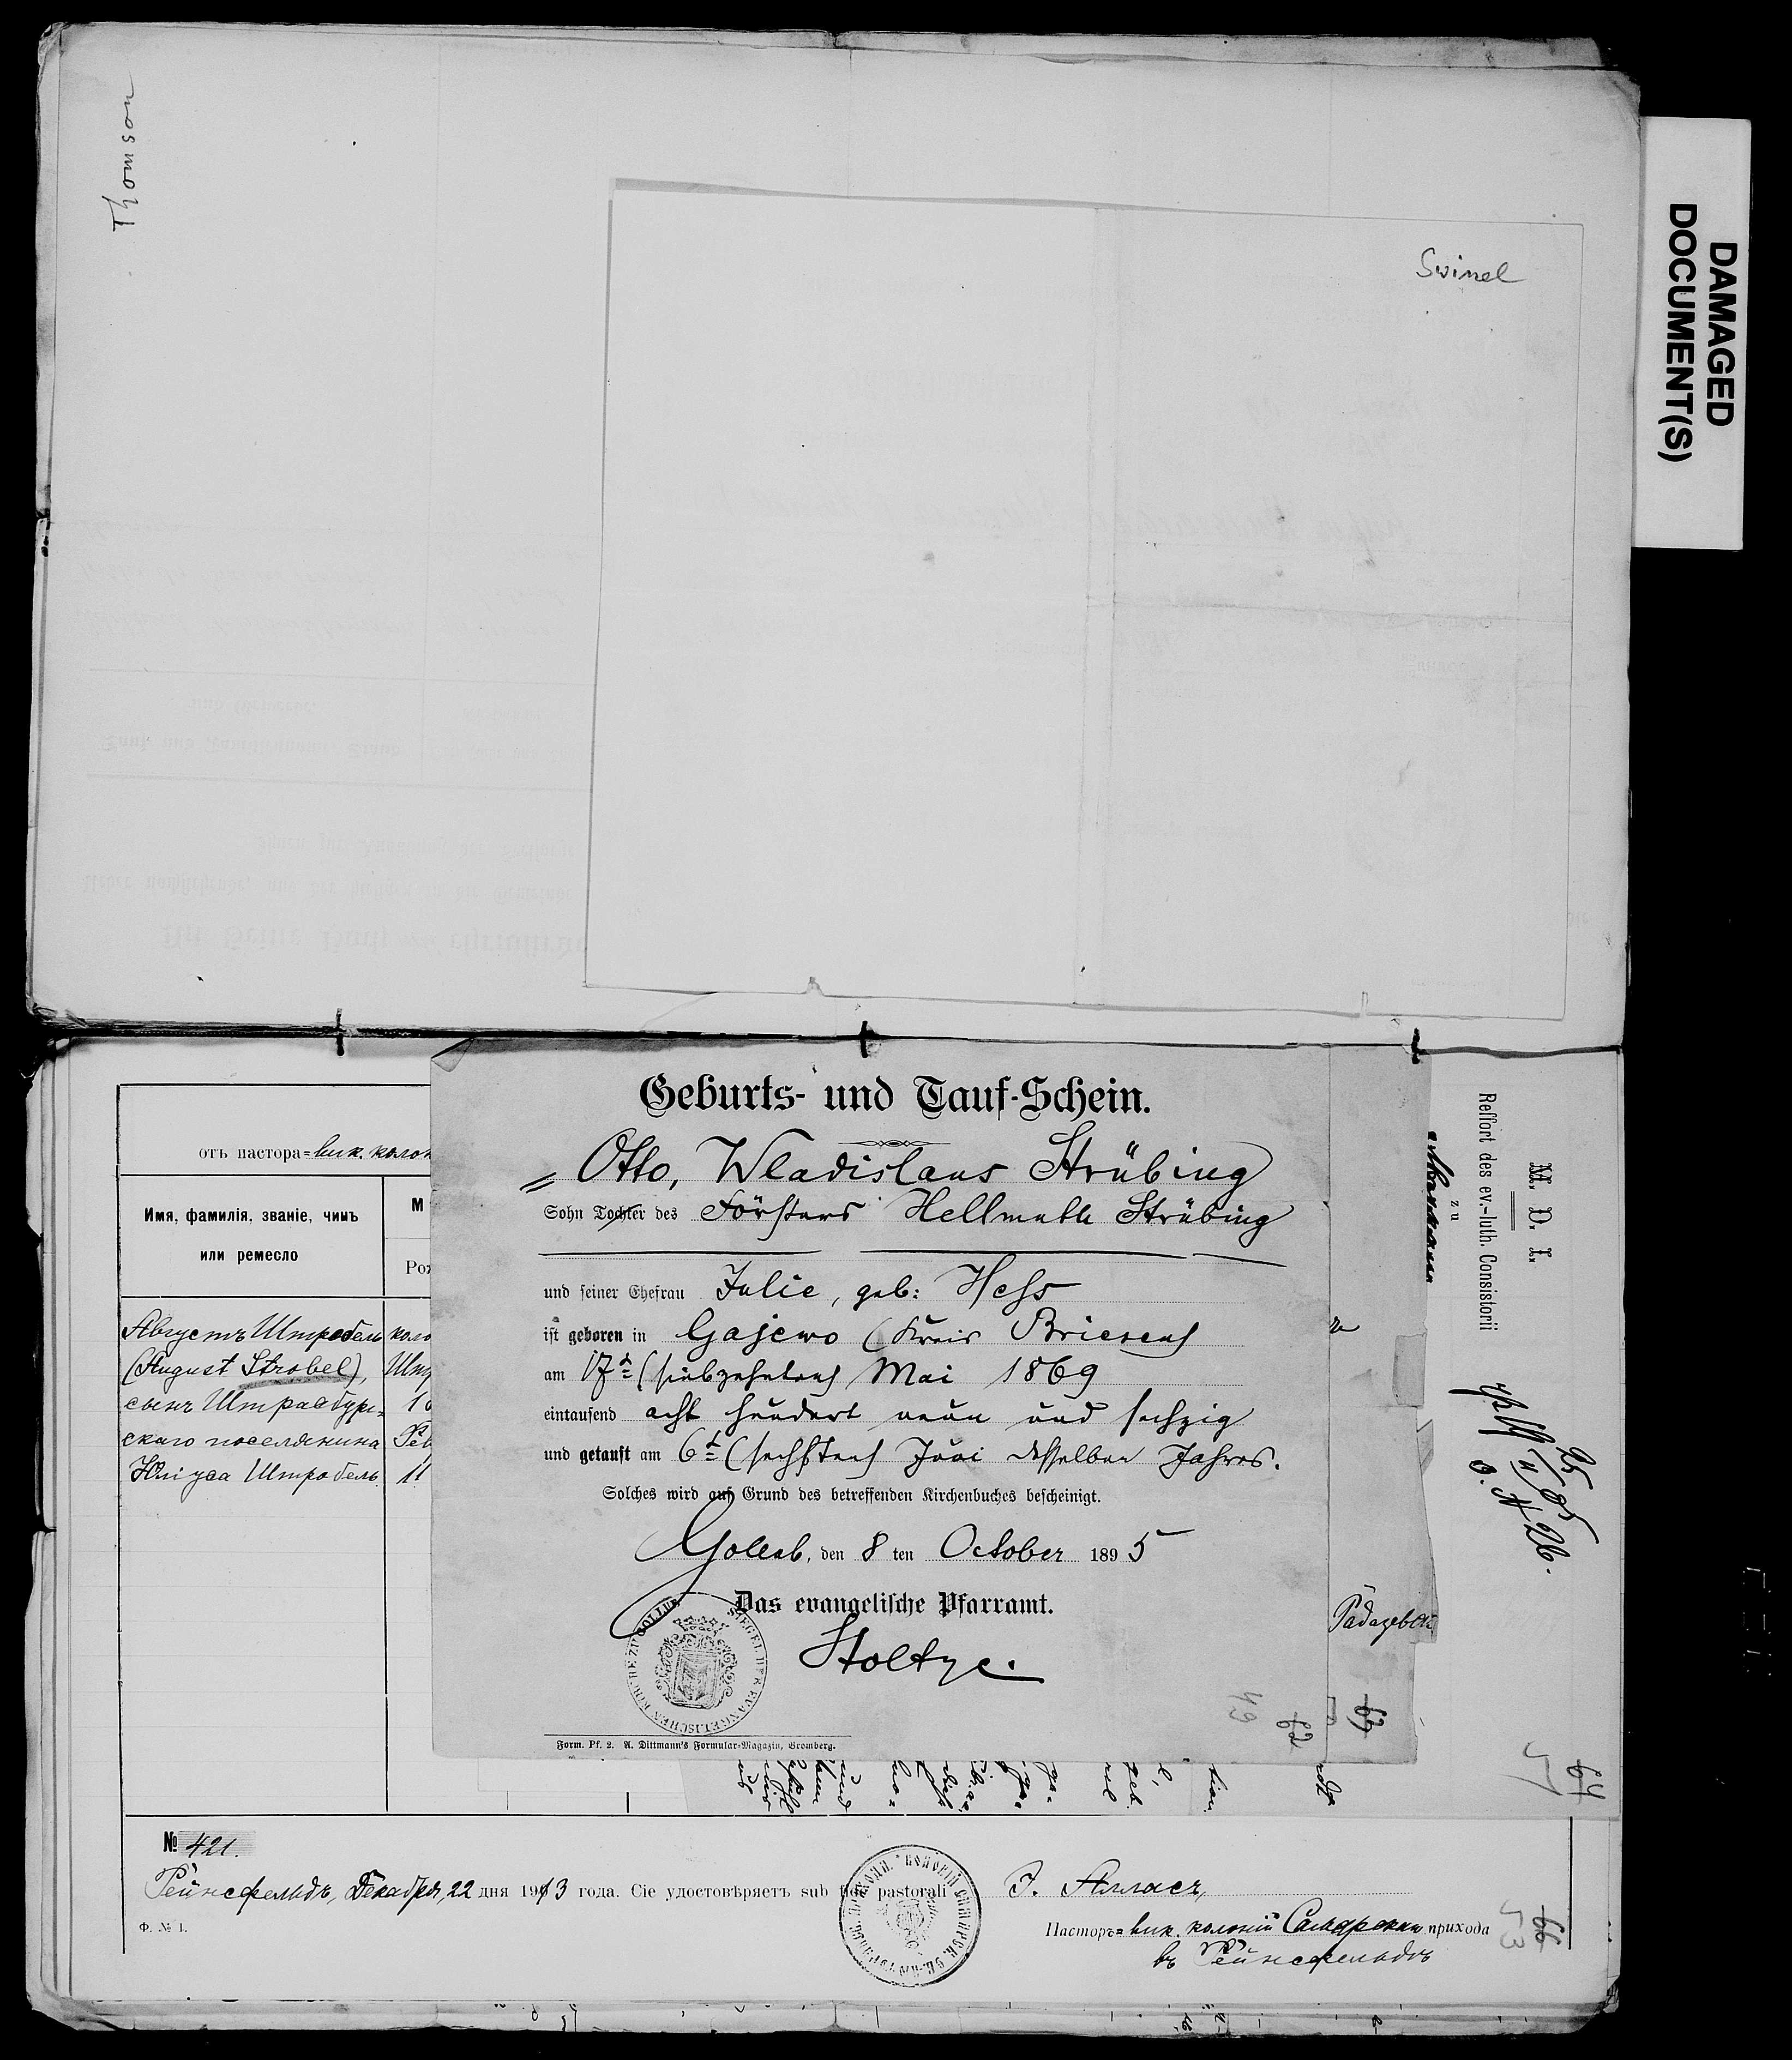 Thomson
Swinel
DAMAGED
DOCUMENT(S)
Geburts- und Tauf-Schein.
Otto, Wladislaus Strübing
Sohn Tochter des Försters Hellmuth Strübing
und seiner Ehefrau Julie, geb: Heß
ist geboren in Gajewo (Kreis Briesen)
am 17t (siebzehnten) Mai 1869
eintausend acht hundert neun und sechzig
und getauft am 6t (sechsten) Juni desselben Jahres.
Solches wird auf Grund des betreffenden Kirchenbuches bescheinigt.
Gollub, den 8 ten October 1895
Das evangelische Pfarramt.
Stoltze.
Form. Pf. 2. A. Dittmann's Formular-Magazin, Bromberg.
отъ пастора=вик. колон
Имя, фамилія, званіе, чинъ
или ремесло
М
Роз
Августъ Штробель коло
(August Strobel), Шт
сынъ Штрасбург=
скаго поселянина
Юлiуса Штробель 11
M. D. I.
Ressort des ev.-luth. Consistorii
zu
49
62
63
64
№ 421.
Рейнсфельдъ, Декабря, 22 дня 1913 года. Сіе удостовѣряетъ sub fide pastorali
Ф. № 1.
Пасторъ=вик. колоній Самарскаго прихода
въ Рейнсфельдѣ
66
53